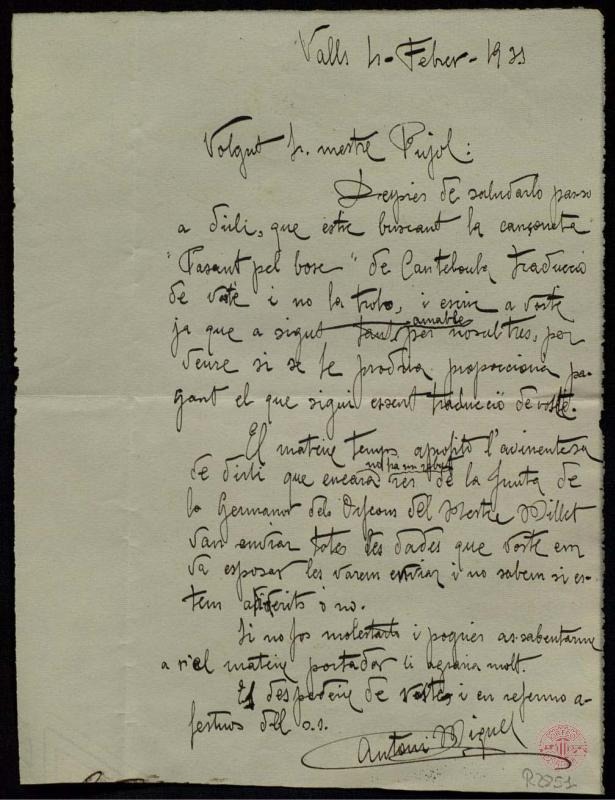 Valls 4 - Febrer - 1933
Volgut Sr. mestre Pujol:
Despies de saludarlo passo
a dirli, que estic buscant la cançoneta
"Pasant pel bosc" de Canteloube traducció
de vostè i no la trobo, i escric a vostè
ja que a sigut tant amable per nosaltres, per
veure si se le podria proporciona pa-
gant el que sigui essent traducció de vostè.
El mateix temps aprofito l'avinentesa
de dirli que encara no ha un rebut res de la Junta de
la Germanor dels Orfeons del Mestre Millet
van enviar totes les dades que vostè em
va esposar les varem enviar i no sabem si es-
tem adherits o no.
Si no fos molestarlo i pogues assabentarme
a n'el mateix portador li agraria molt.
Es despedeix de vostè i en refermo a-
fectuos del o.s.
Antoni Miquel
R.2851